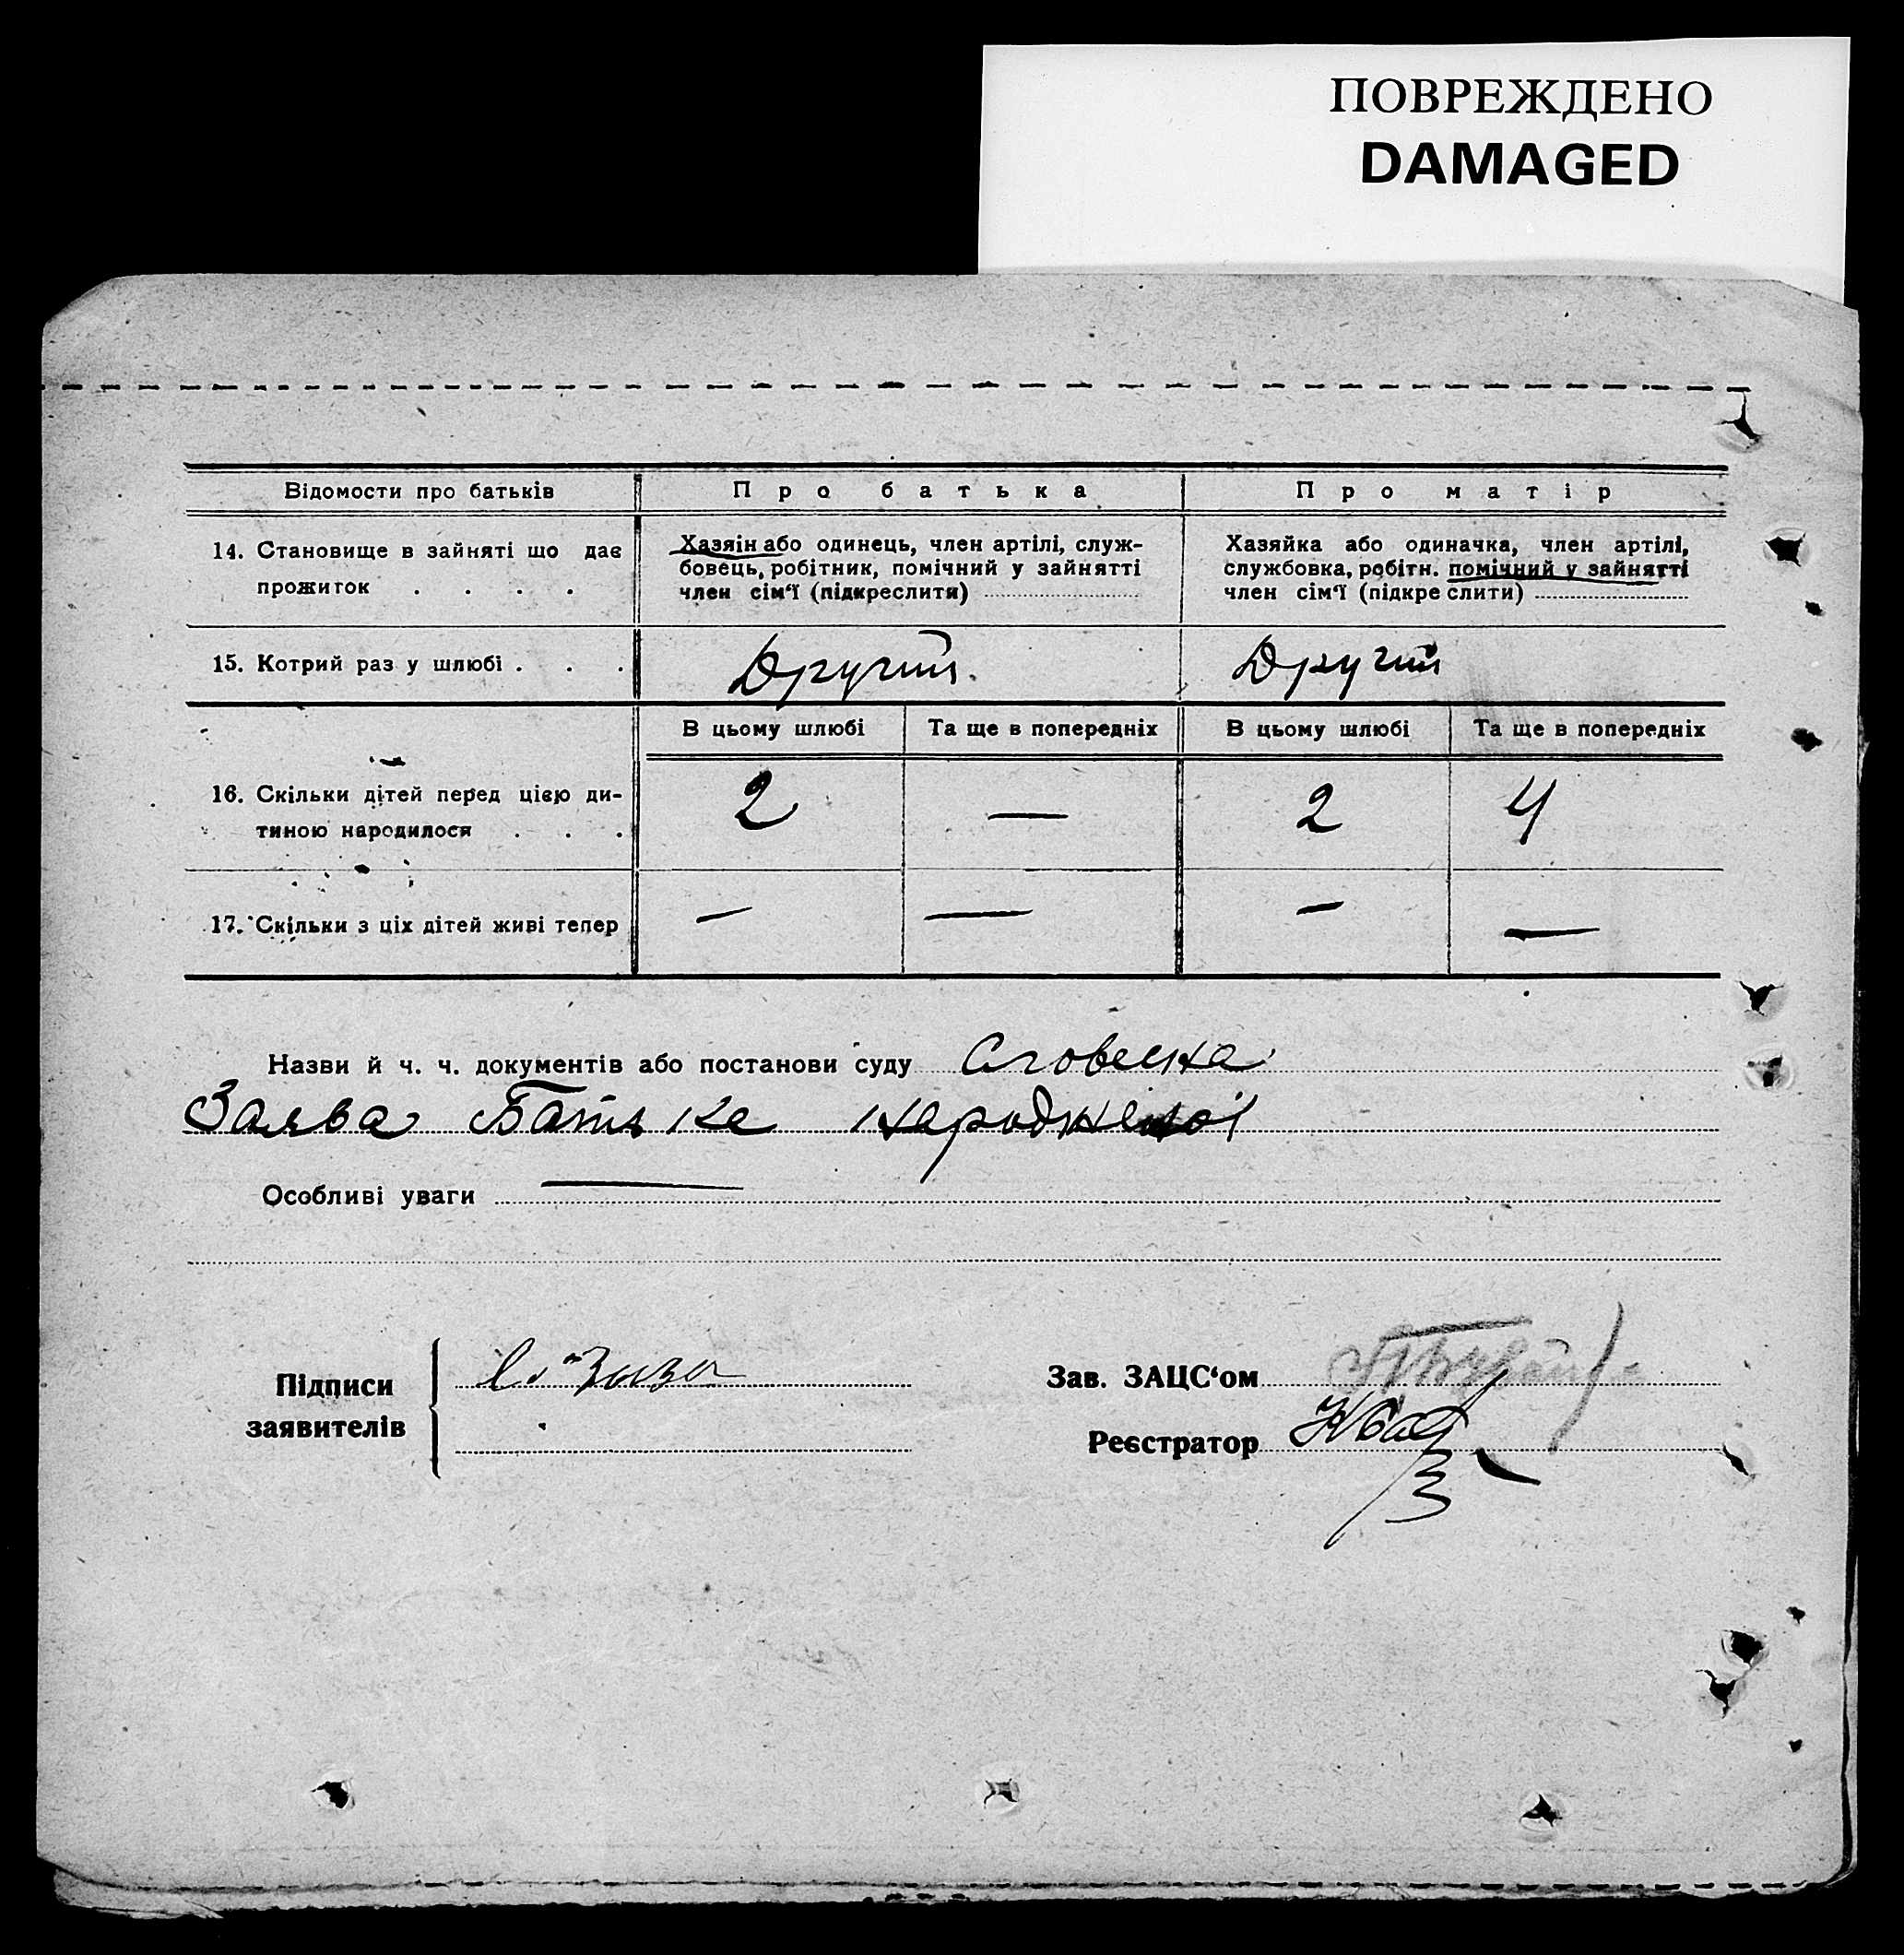 ПОВРЕЖДЕНО
DAMAGED
Відомости про батьків Про батька Про матір
14. Становище в зайняті що дає прожиток . . . .
Хазяін або одинець, член артілі, служ-
бовець, робітник, помічний у зайнятті
член сім‘ї (підкреслити)
Хазяйка або одиначка, член артілі,
службовка, робітн. помічний у зайнятті
член сім‘ї (підкреслити)
15. Котрий раз у шлюбі . . . Другий. Другий
В цьому шлюбі Та ще в попередніх В цьому шлюбі Та ще в попередніх
16. Скільки дітей перед цією ди-
тиною народилося . . . 2 — 2 4
17. Скільки з ціх дітей живі тепер — — — —
Назви й ч. ч. документів або постанови суду Словесна
Заява Батька народженої
Особливі уваги —
Підписи
заявителів
Зав. ЗАЦС‘ом
Реєстратор